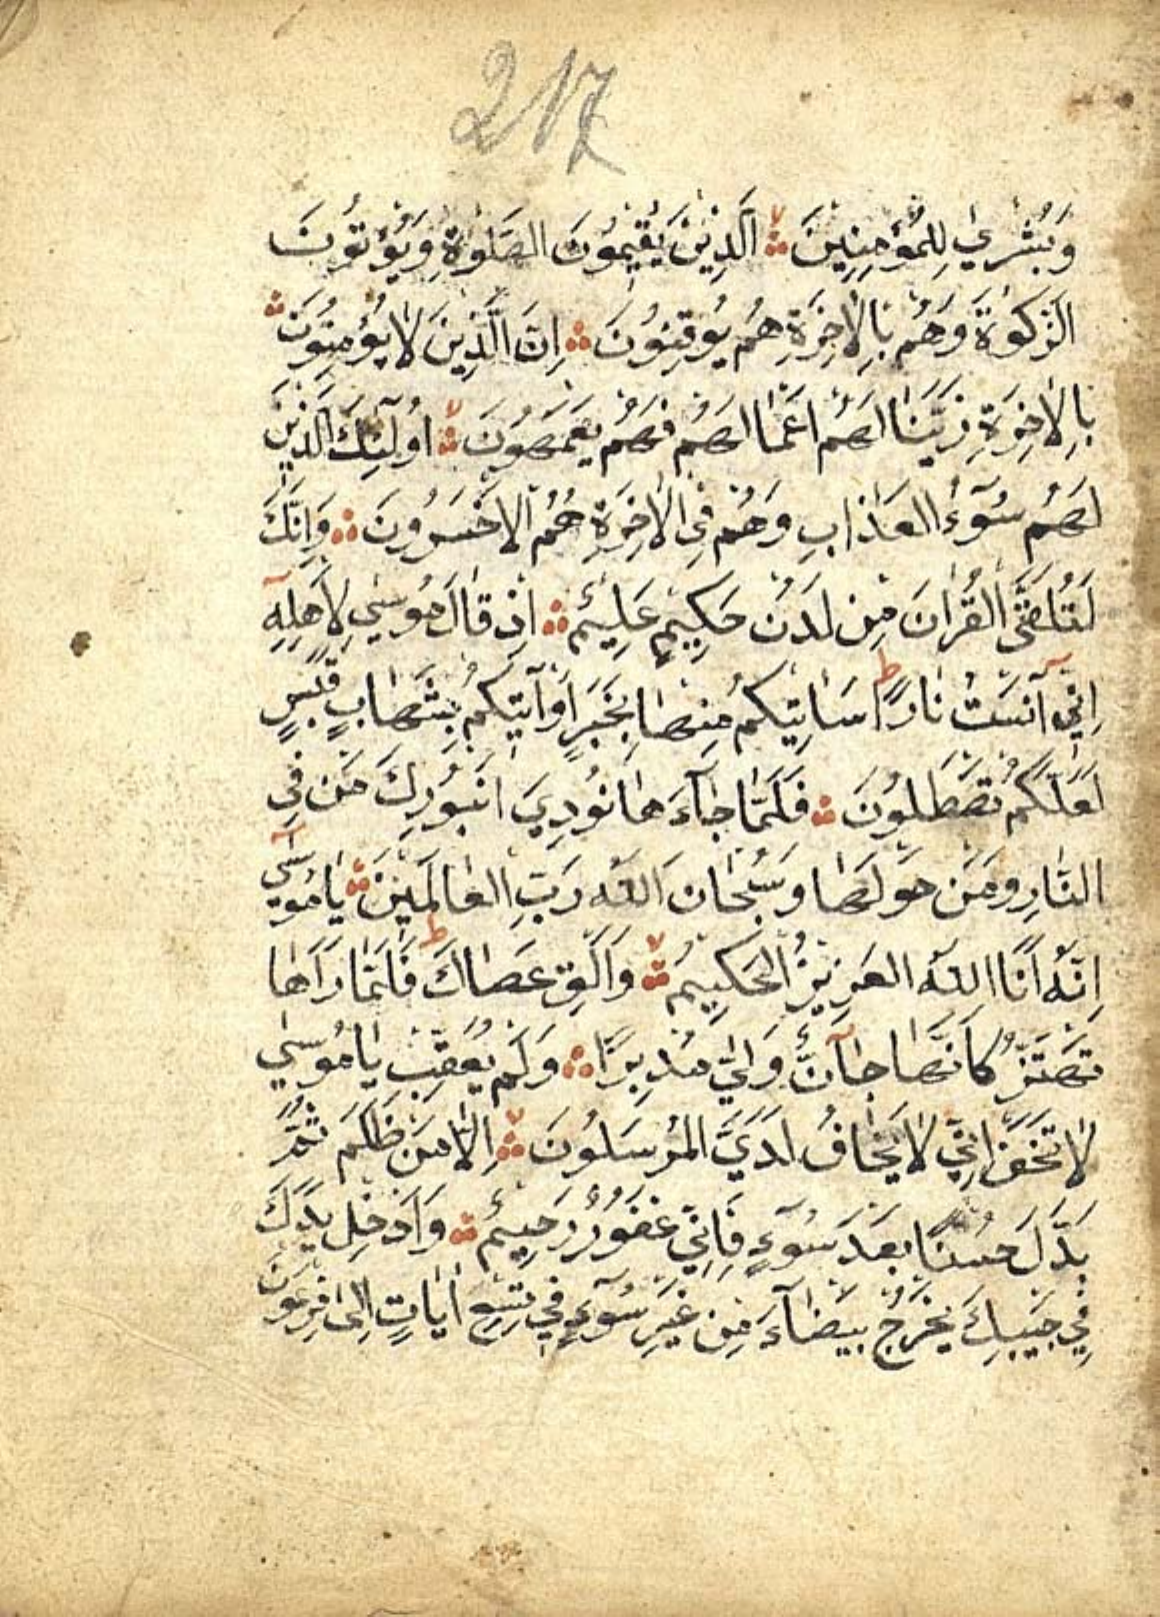 217
وَبُشْرٰي لِلْمُؤْمِنِينَ الَّذِينَ يُقِيمُونَ الصَّلٰوةَ وَيُؤْتُونَ
الزَّكٰوةَ وَهُمْ بِالْاٰخِرَةِ هُمْ يُوقِنُونَ اِنَّ الَّذِينَ لَا يُؤْمِنُونَ
بِالْاٰخِرَةِ زَيَّنَّا لَهُمْ اَعْمَالَهُمْ فَهُمْ يَعْمَهُونَ اُولٰٓئِكَ الَّذِينَ
لَهُمْ سُوٓءُ الْعَذَابِ وَهُمْ فِي الْاٰخِرَةِ هُمُ الْاَخْسَرُونَ وَاِنَّكَ
لَتُلَقَّى الْقُرْاٰنَ مِنْ لَدُنْ حَكِيمٍ عَلِيمٍ اِذْ قَالَ مُوسٰي لِاَهْلِهِ
اِنِّي آنَسْتُ نَارًا سَاٰتِيكُمْ مِنْهَا بِخَبَرٍ اَوْ آتِيكُمْ بِشِهَابٍ قَبَسٍ
لَعَلَّكُمْ تَصْطَلُونَ فَلَمَّا جَآءَهَا نُودِيَ اَنْ بُورِكَ مَنْ فِي
النَّارِ وَمَنْ حَوْلَهَا وَسُبْحَانَ اللّٰهِ رَبِّ الْعَالَمِينَ يَامُوسٰٓي
اِنَّهُ اَنَا اللّٰهُ الْعَزِيزُ الْحَكِيمُ وَاَلْقِ عَصَاكَ فَلَمَّا رَاٰهَا
تَهْتَزُّ كَاَنَّهَا جَآنٌّ وَلّٰي مُدْبِرًا وَلَمْ يُعَقِّبْ يَامُوسٰي
لَا تَخَفْ اِنِّي لَا يَخَافُ لَدَيَّ الْمُرْسَلُونَ اِلَّا مَنْ ظَلَمَ ثُمَّ
بَدَّلَ حُسْنًا بَعْدَ سُوٓءٍ فَاِنِّي غَفُورٌ رَحِيمٌ وَاَدْخِلْ يَدَكَ
فِي جَيْبِكَ تَخْرُجْ بَيْضَآءَ مِنْ غَيْرِ سُوٓءٍ فِي تِسْعِ اٰيَاتٍ اِلٰى فِرْعَوْنَ